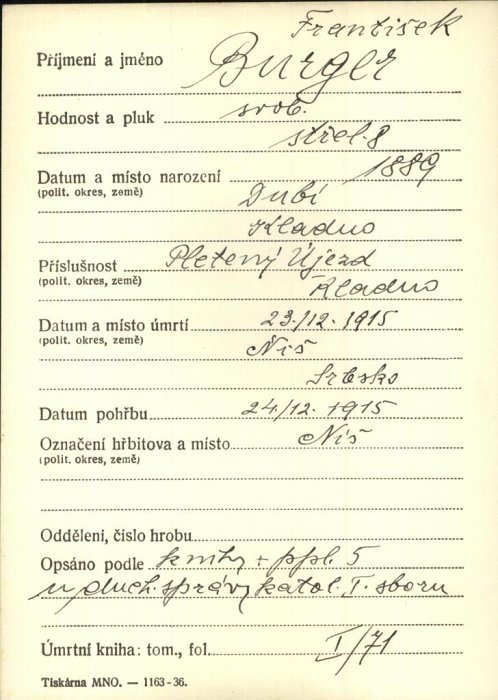 František
Příjmení a jméno Burger
Hodnost a pluk svob.
střel. 8
Datum a místo narození 1889
(polit. okres, země) Dubí
Kladno
Příslušnost Pletený Újezd
(polit. okres, země) Kladno
Datum a místo úmrtí 23/12. 1915
(polit. okres, země) Niš
Srbsko
Datum pohřbu 24/12. 1915
Označení hřbitova a místo Niš
(polit. okres, země)
Oddělení, číslo hrobu
Opsáno podle knihy + ppl. 5
u duch. správy katol. I. sboru
Úmrtní kniha: tom., fol. I/71
Tiskárna MNO. — 1163-36.